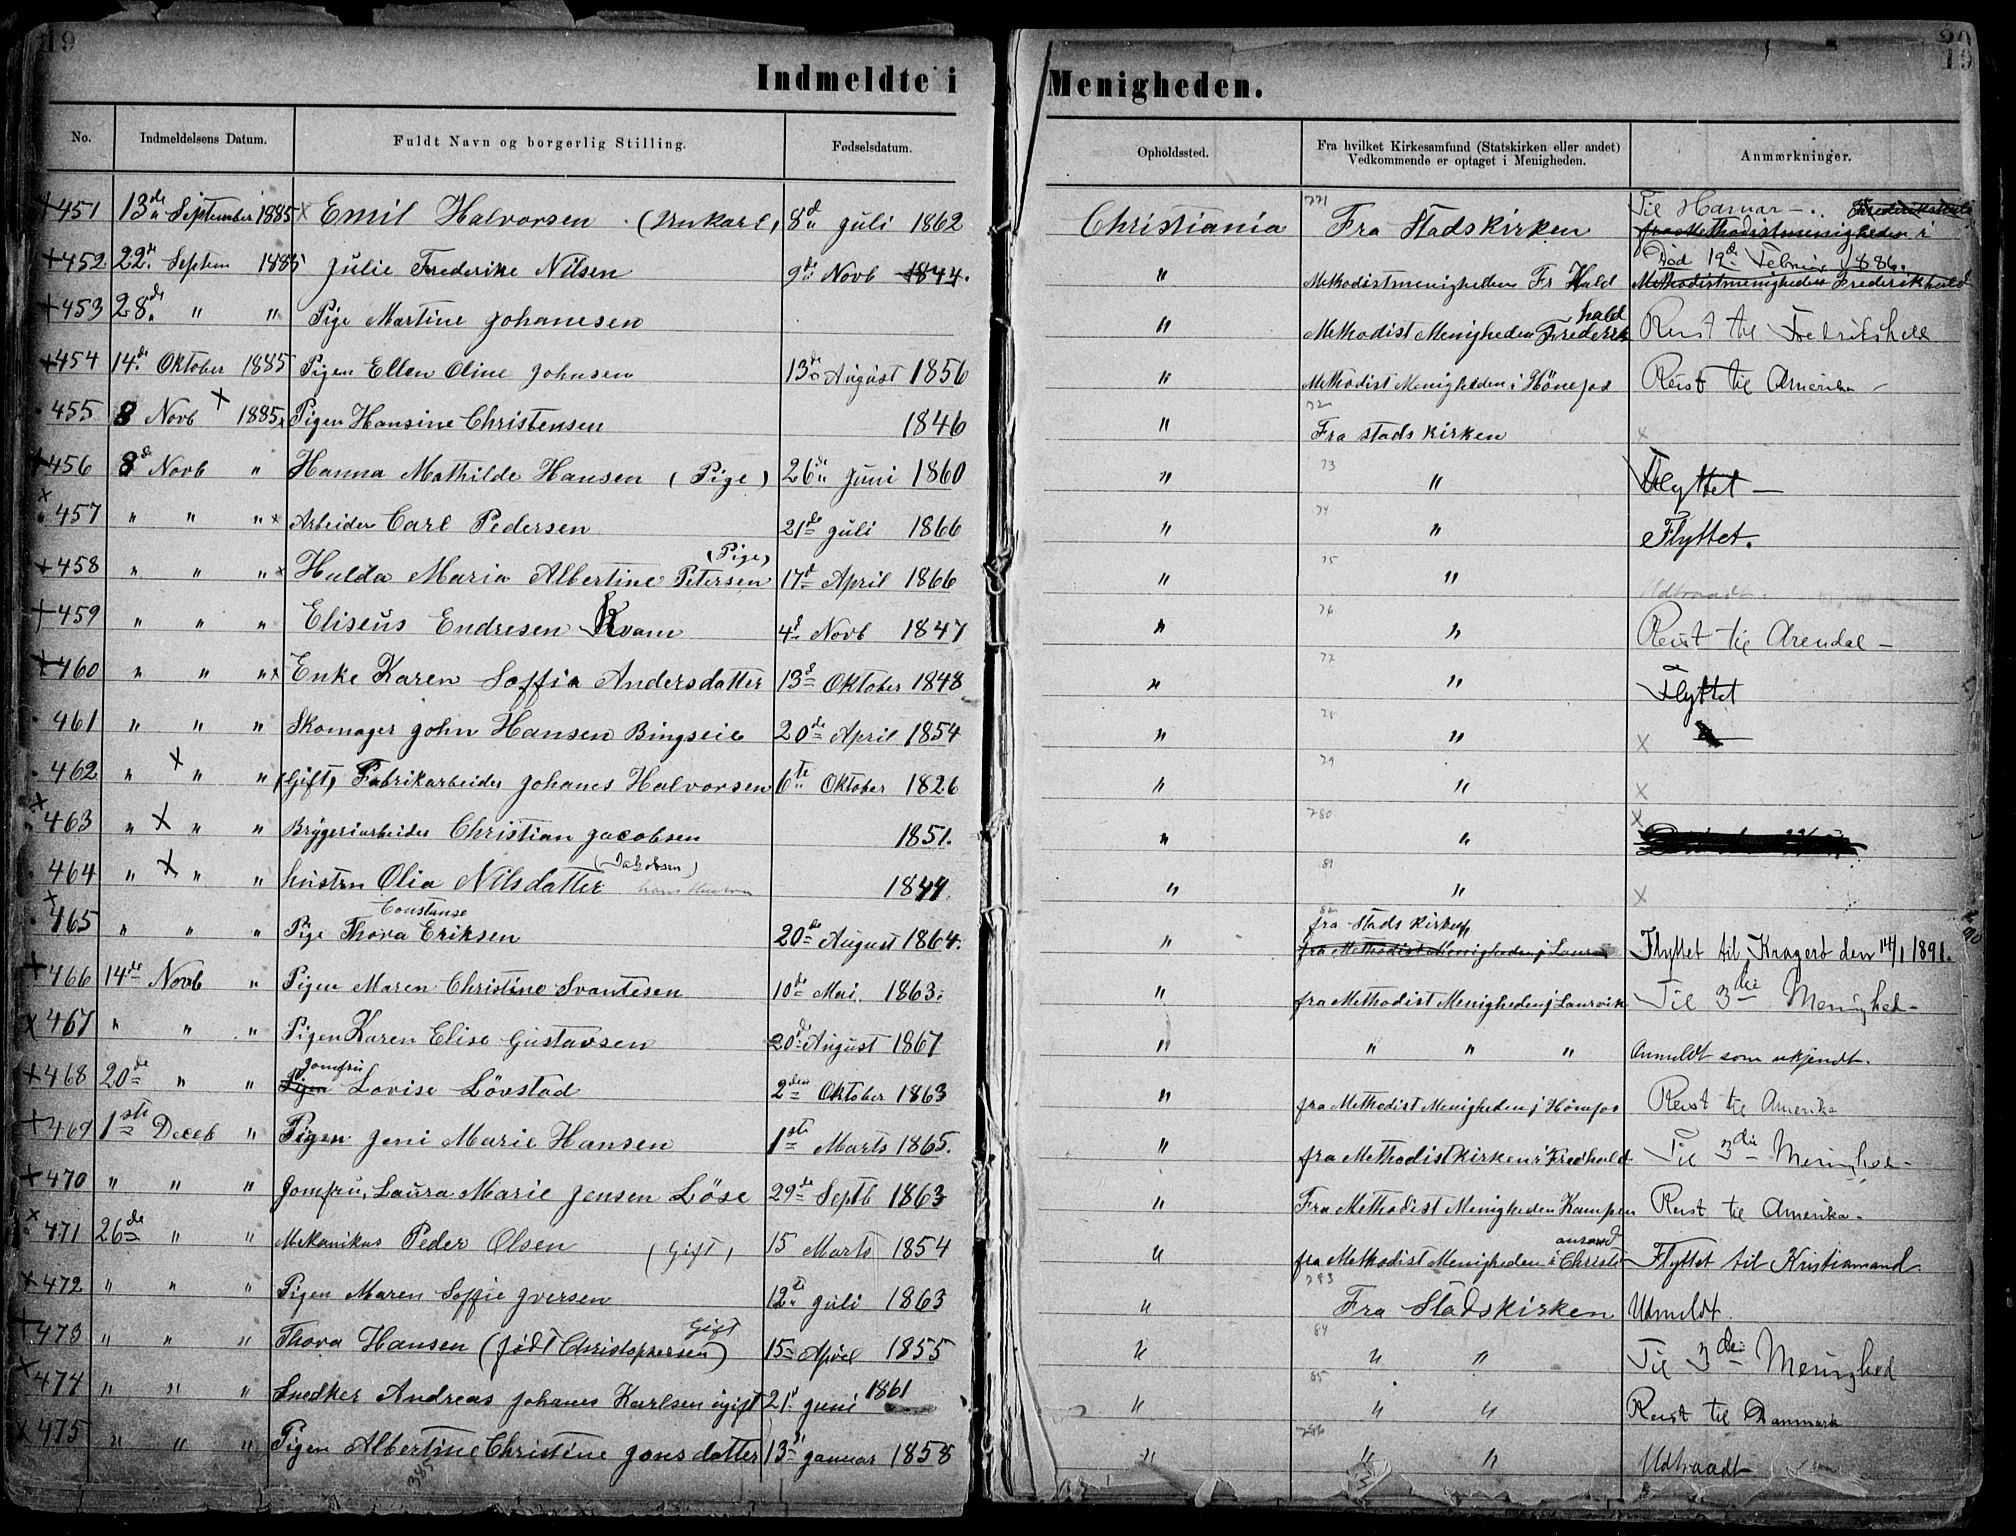 19
Indmeldte i Menigheden.
19
No. Indmeldelsens Datum. Fuldt Navn og borgerlig Stilling. Fødselsdatum. Opholdssted. Fra hvilket Kirkesamfund (Statskirken eller andet) Vedkommende er optaget i Menigheden. Anmærkninger.
451 13de September 1885 Emil Halvorsen (Unkarl) 8de Juli 1862 Christiania 271 Fra Stadskirken Til Hamar
452 22de Septem 1885 Julie Frederike Nilsen 9de Novb 1844. " Methodistmenigheden Fr Hald Død 19de Februar 1886. Methodistmenigheden Frederikhald
453 28de " " Pige Martine Johanesen " Methodist Menigheden Frederikhald Reist til Fredrikshald
454 14de Oktober 1885 Pigen Ellen Oline Johnsen 13de August 1856 " Methodist Menigheden i Hönefos Reist til Amerika
455 8 Novb 1885 Pigen Hansine Christensen 1846 " 72 Fra stads kirken x
456 8de Novb " Hanna Mathilde Hansen (Pige) 26de Juni 1860 " 73 " Flyttet
457 " " " Arbeider Carl Pedersen 21de Juli 1866 " 74 " Flyttet.
458 " " " Hulda Maria Albertine Petersen (Pige) 17d April 1866 " 75 " Udtraadt
459 " " " Eliseus Endresen Kvam 4d Novb 1847 " 76 " Reist til Arendal
460 " " " Enke Karen Soffia Andersdatter 13d Oktober 1848 " 77 " Flyttet
461 " " " Skomager John Hansen Bingseie 20de April 1854 " 78 " x
462 " " " (Gift) Fabrikarbeider Johanes Halvorsen 6te Oktober 1826 " 79 " x
463 " " " Bryggeriarbeider Christian Jacobsen 1851. " 280 " x
464 " " " hustru Olia Nilsdatter (Jakobsen) 1844 " 81 " x
465 " " " Pige Thora Constanse Eriksen 20de August 1864. " 82 fra Stads kirken fra Methodist Menigheden j Laurvi Flyttet til Kragerö den 14/1 1891.
466 14de Novb " Pigen Maren Christine Svantesen 10de Mai 1863. " fra Methodist Menigheden j Laurvik Til 3die Menighed
467 " " " Pigen Karen Elise Gustavsen 20de August 1867 " " " " Anmeldt som ukjendt.
468 20de " " Pigen Jomfru Lovise Lövstad 2den Oktober 1863 " fra Methodist Menigheden j Hönefos Reist til Amerika
469 1ste Deceb " Pigen Jeni Marie Hansen 1ste Marts 1865. " fra Methodistkirken i Fredhald Til 3die Menighed
470 " " " Jomfru Laura Marie Jensen Löse 29de Septb 1863 " Fra Methodist Menigheden Kampen Reist til Amerika
471 26de " " Mekanikus Peder Olsen (Gift) 15 Marts 1854 " fra Methodist Menigheden i Christiansand Flyttet til Kristiansand
472 " " " Pigen Maren Soffie Iversen 12te Juli 1863 " 283 Fra Stadskirken Udmeldt
473 " " " Thora Hansen (født Christophersen) Gift 15 April 1855 " 84 " " Til 3die Menighed
474 " " " Snedker Andreas Johanes Karlsen ugift 21d Juni 1861 " 85 " " Reist til Danmark
475 " " " Pigen Albertine Christine Jonsdatter 13d Januar 1858 " 286 " " Udtraadt
385